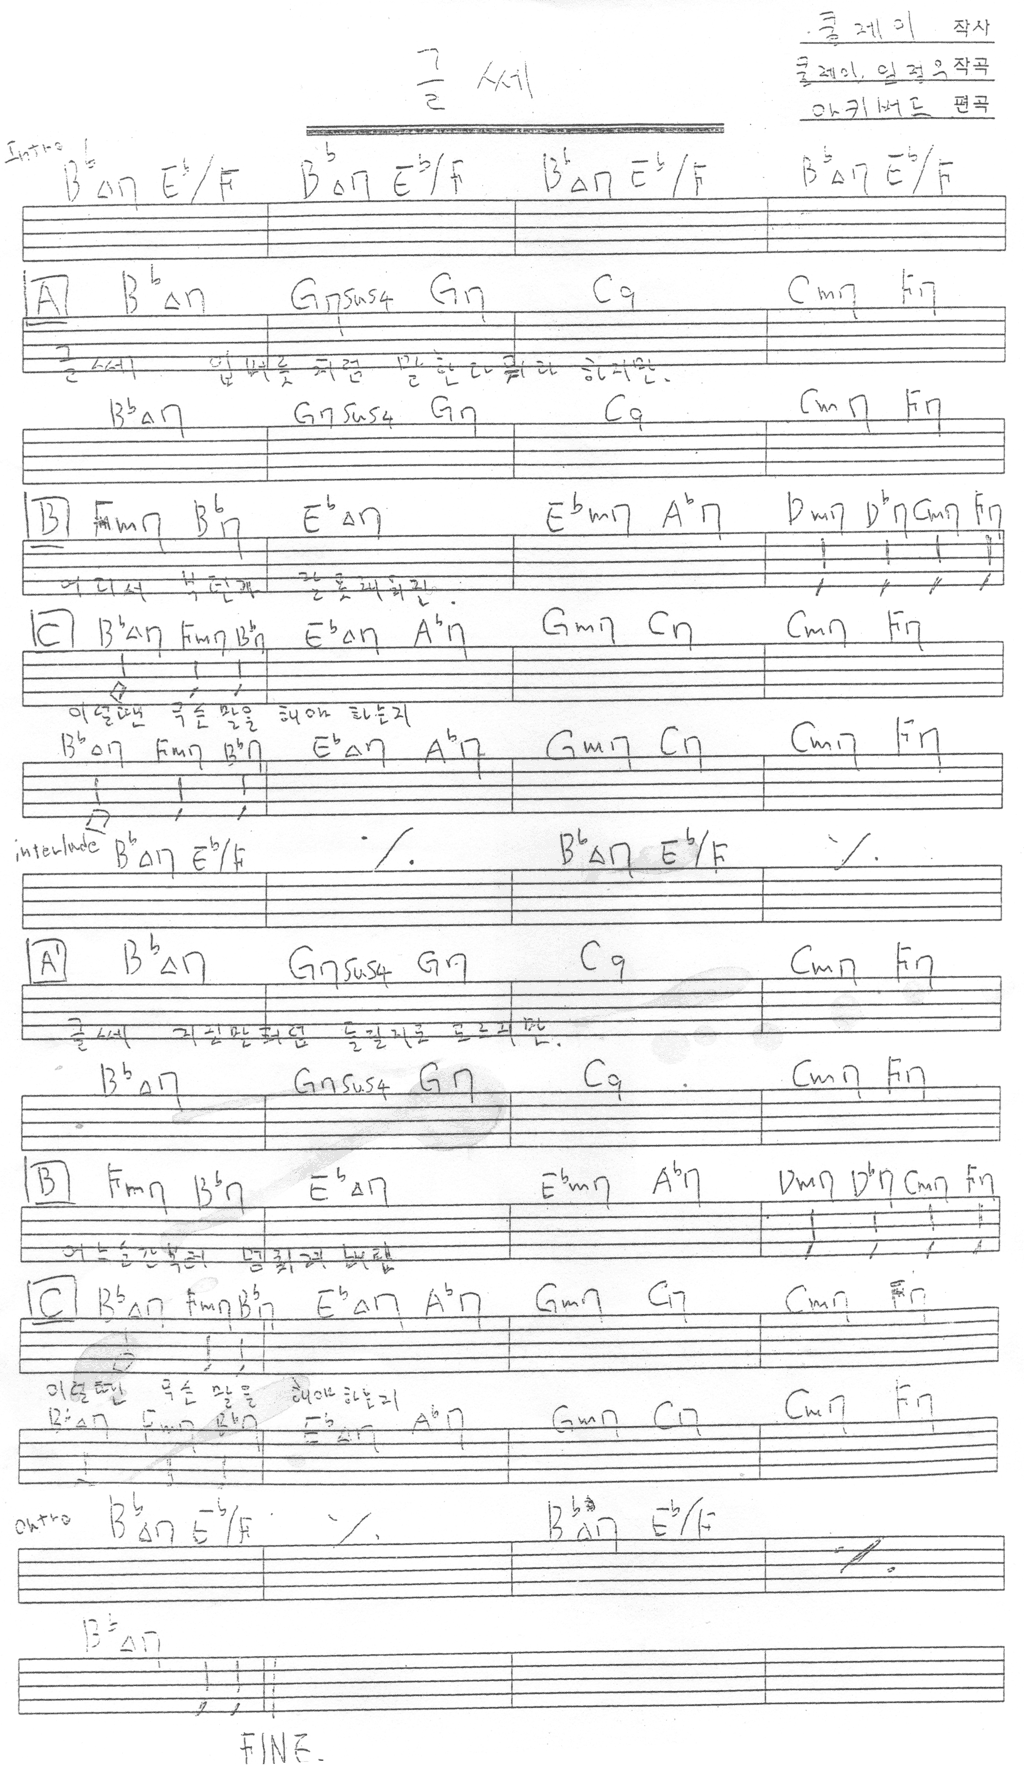 클레이 작사
글쎄
클레이, 임정우 작곡
아키버드 편곡
Intro
B♭△7 E♭/F B♭△7 E♭/F B♭△7 E♭/F B♭△7 E♭/F
A B♭△7 G7sus4 G7 C9 Cm7 F7
글쎄 입버릇처럼 말한다 하지만.
B♭△7 G7sus4 G7 C9 Cm7 F7
B Fm7 B♭7 E♭△7 E♭m7 A♭7 Dm7 D♭7 Cm7 F7
어디서 부턴가 잘못돼버린.
C B♭△7 Fm7 B♭7 E♭△7 A♭7 Gm7 C7 Cm7 F7
이럴땐 무슨 말을 해야 하는지
B♭△7 Fm7 B♭7 E♭△7 A♭7 Gm7 C7 Cm7 F7
interlude B♭△7 E♭/F ٪. B♭△7 E♭/F ٪.
A' B♭△7 G7sus4 G7 C9 Cm7 F7
글쎄 들릴지도 모르지만.
B♭△7 G7sus4 G7 C9 Cm7 F7
B Fm7 B♭7 E♭△7 E♭m7 A♭7 Dm7 D♭7 Cm7 F7
어느순간부터 멈춰져버린
C B♭△7 Fm7 B♭7 E♭△7 A♭7 Gm7 C7 Cm7 F7
이럴땐 무슨 말을 해야하는지
B♭△7 Fm7 B♭7 E♭△7 A♭7 Gm7 C7 Cm7 F7
outro B♭△7 E♭/F ٪. B♭△7 E♭/F ٪.
B♭△7
FINE.